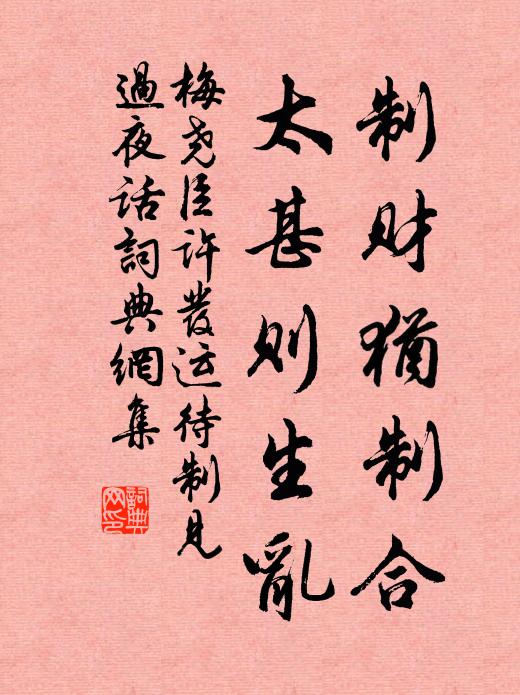 制财犹制合
太甚则生乱
梅尧臣许發运待制見
過夜话詞典網集
詞典
网印